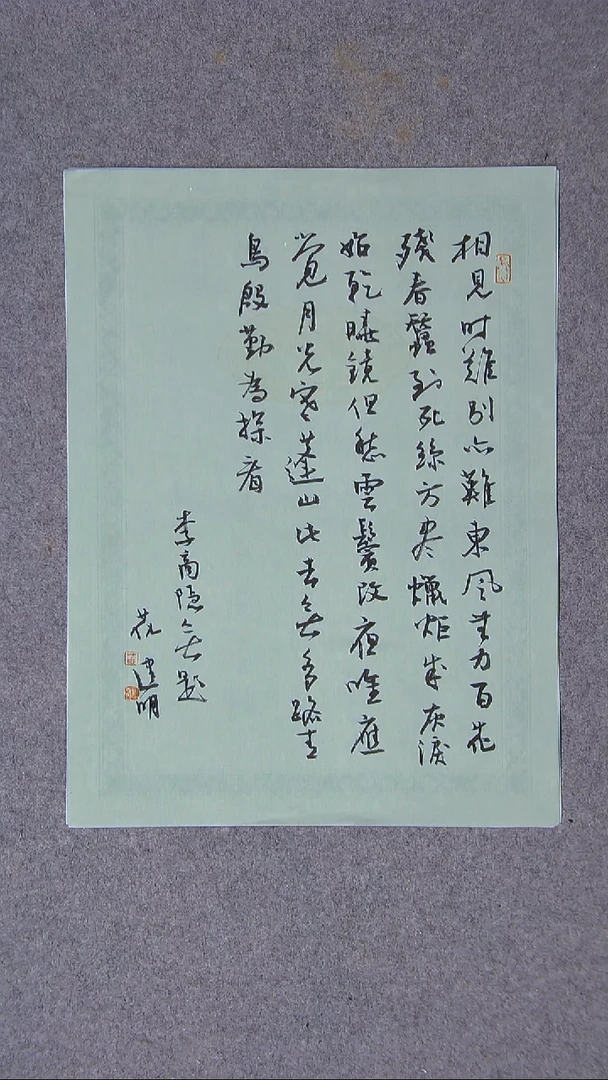 相見时難別亦難東風無力百花
殘春蠶到死絲方尽爉炬成灰淚
始乾曉鏡但愁雲鬢改夜唯應
覺月光寒蓬山此去無多路青
鳥殷勤為探看
李商隱無題
建明